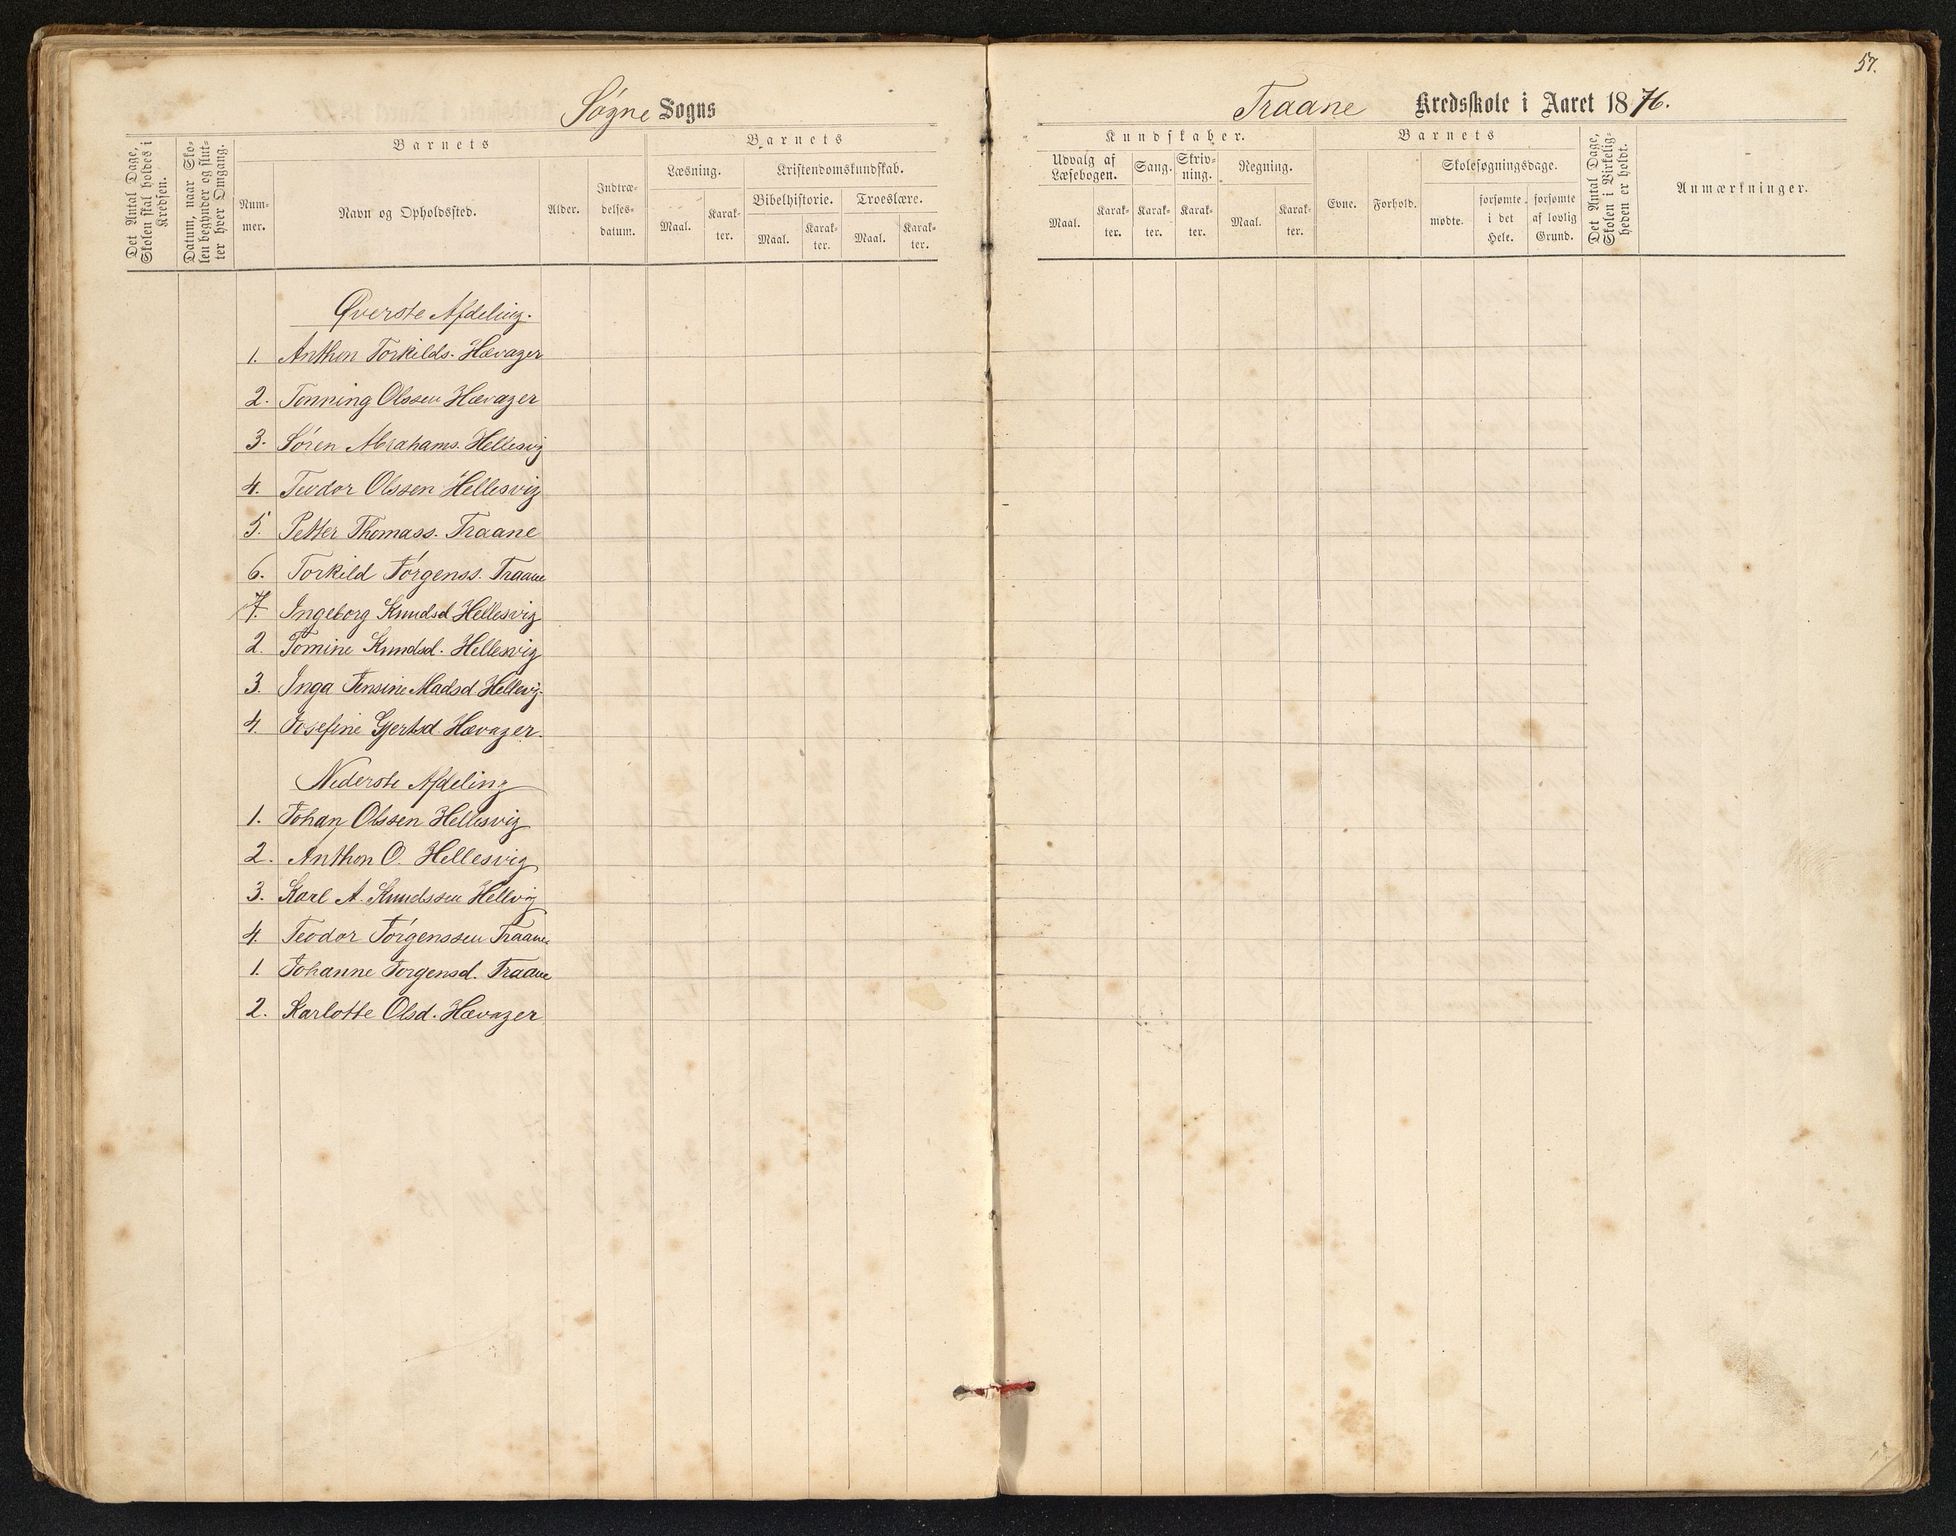 57.
Søgne Sogns
Traane Kredsskole i Aaret 1876.
Det Antal Dage, Skolen skal holdes i Kredsen.
Datum, naar Skolen begynder og slutter hver Omgang.
Barnets
Nummer.
Navn og Opholdssted.
Alder.
Indtrædelsesdatum.
Barnets
Læsning.
Maal.
Karakter.
Kristendomskundskab.
Bibelhistorie.
Maal.
Karakter.
Troeslære.
Maal.
Karakter.
Kundskaber.
Udvalg af Læsebogen.
Maal.
Karakter.
Sang.
Karakter.
Skrivning.
Karakter.
Regning.
Maal.
Karakter.
Barnets
Evne.
Forhold.
Skolesøgningsdage.
mødte.
forsømte i det Hele.
forsømte af lovlig Grund.
Det Antal Dage, Skolen i Virkeligheden er holdt.
Anmærkninger.
Øverste Afdeling.
1. Anthon Torkilds. Hævager
2. Tønning Olssen Hævager
3. Søren Abrahams. Hellesvig
4. Teodor Olssen Hellesvig
5. Petter Thomass. Traane
6. Torkild Jørgenss. Traane
1. Ingeborg Knudsd Hellesvig
2. Tomine Knudsd. Hellesvig
3. Inga Jensine Madsd. Hellevig.
4. Josefine Gjertsd. Hævager.
Nederste Afdeling
1. Johan Olssen Hellesvig
2. Anthon O. Hellesvig
3. Karl A. Knudssen Hellvig
4. Teodor Jørgenssen Traane
1. Johanne Jørgensd. Traane
2. Karlotte Olsd. Hævager